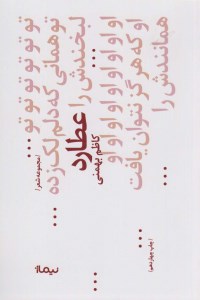 تو تو تو تو تو تو
توهمانی که دلم لک زده
لبخندش را ...
عطارد
کاظم بهمنی
(مجموعه شعر)
او او او او او او او او او
او که هرگز نتوان یافت
همانندش را ...
(چاپ چهاردهم)
نیماژ